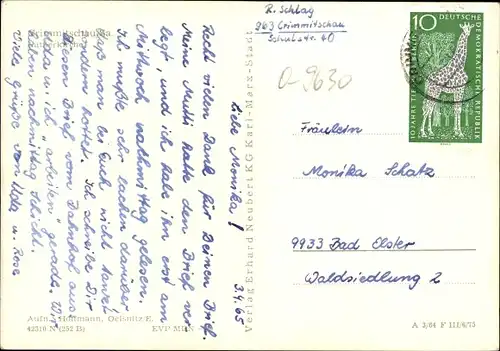 Crimmitschau/Sa.
Lutherkirche
R. Schlag
963 Crimmitschau
Schulstr. 40
10 DEUTSCHE
DEMOKRATISCHE REPUBLIK
10 JAHRE TIERPARK
a-9630
3.4.65
Liebe Monika!
Recht vielen Dank für Deinen Brief.
Meine Mutti hatte den Brief ver
legt, und ich habe ihn erst am
Mittwoch nachmittag gelesen.
Ich mußte sehr lachen darüber,
daß man bei Euch nicht
sondern kostet. Ich schreibe Dir
diesen Brief vom Bahnhof aus,
u. ich "arbeite" gerade. Wir
haben nachmittag Schicht.
Viele Grüße von u.
Fräulein
Monika Schatz
9933 Bad Elster
Waldsiedlung 2
Verlag Erhard Neubert KG Karl-Marx-Stadt
Aufn.: Hoffmann, Oelsnitz/E.
42310 N 4252 Bi EVP MDN
A 3/64 F III/6/73